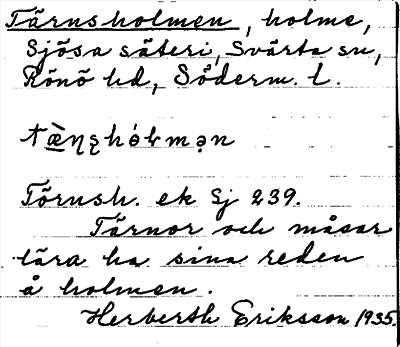 Tärnsholmen, holme,
Sjösa säteri, Svärta sn,
Rönö hd, Söderm. l.
Törnsh. ek Sj 239.
Tärnor och måsar
lära ha sina reden
å holmen.
Herberth Eriksson 1935.